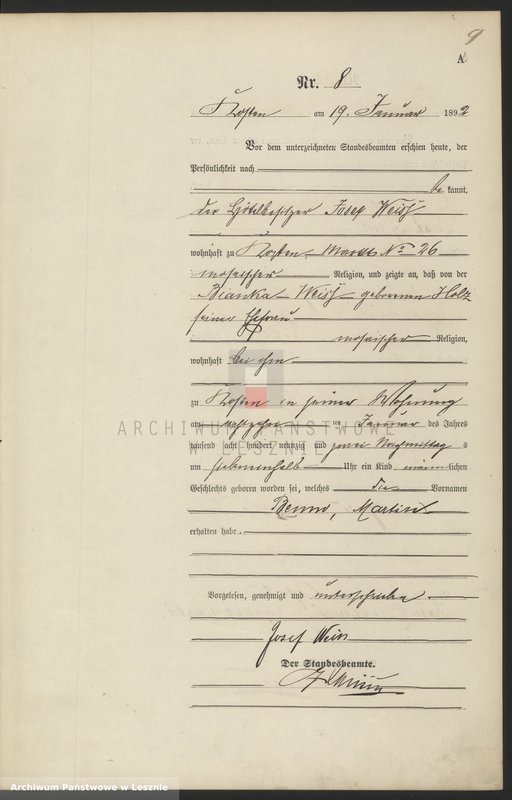 9
A.
Nr. 8
Kosten am 19. Januar 1892
Vor dem unterzeichneten Standesbeamten erschien heute, der
Persönlichkeit nach
be kannt,
der Hôtelbesitzer Josef Weiß
wohnhaft zu Kosten, Markt No 26
mosaischer Religion, und zeigte an, daß von der
Bianka Weiß geborenen Holz
seiner Ehefrau
mosaischer Religion,
wohnhaft bei ihm
zu Kosten in seiner Wohnung
am achtzehnten Januar des Jahres
tausend acht hundert neunzig und zwei Nachmittag s
um siebeneinhalb Uhr ein Kind männlichen
Geschlechts geboren worden sei, welches die Vornamen
Benno, Martin
erhalten habe.
Vorgelesen, genehmigt und unterschrieben
Josef Weiss
Der Standesbeamte.
ARCHIWUM PAŃSTWOWE
W LESZNIE
Archiwum Państwowe w Lesznie